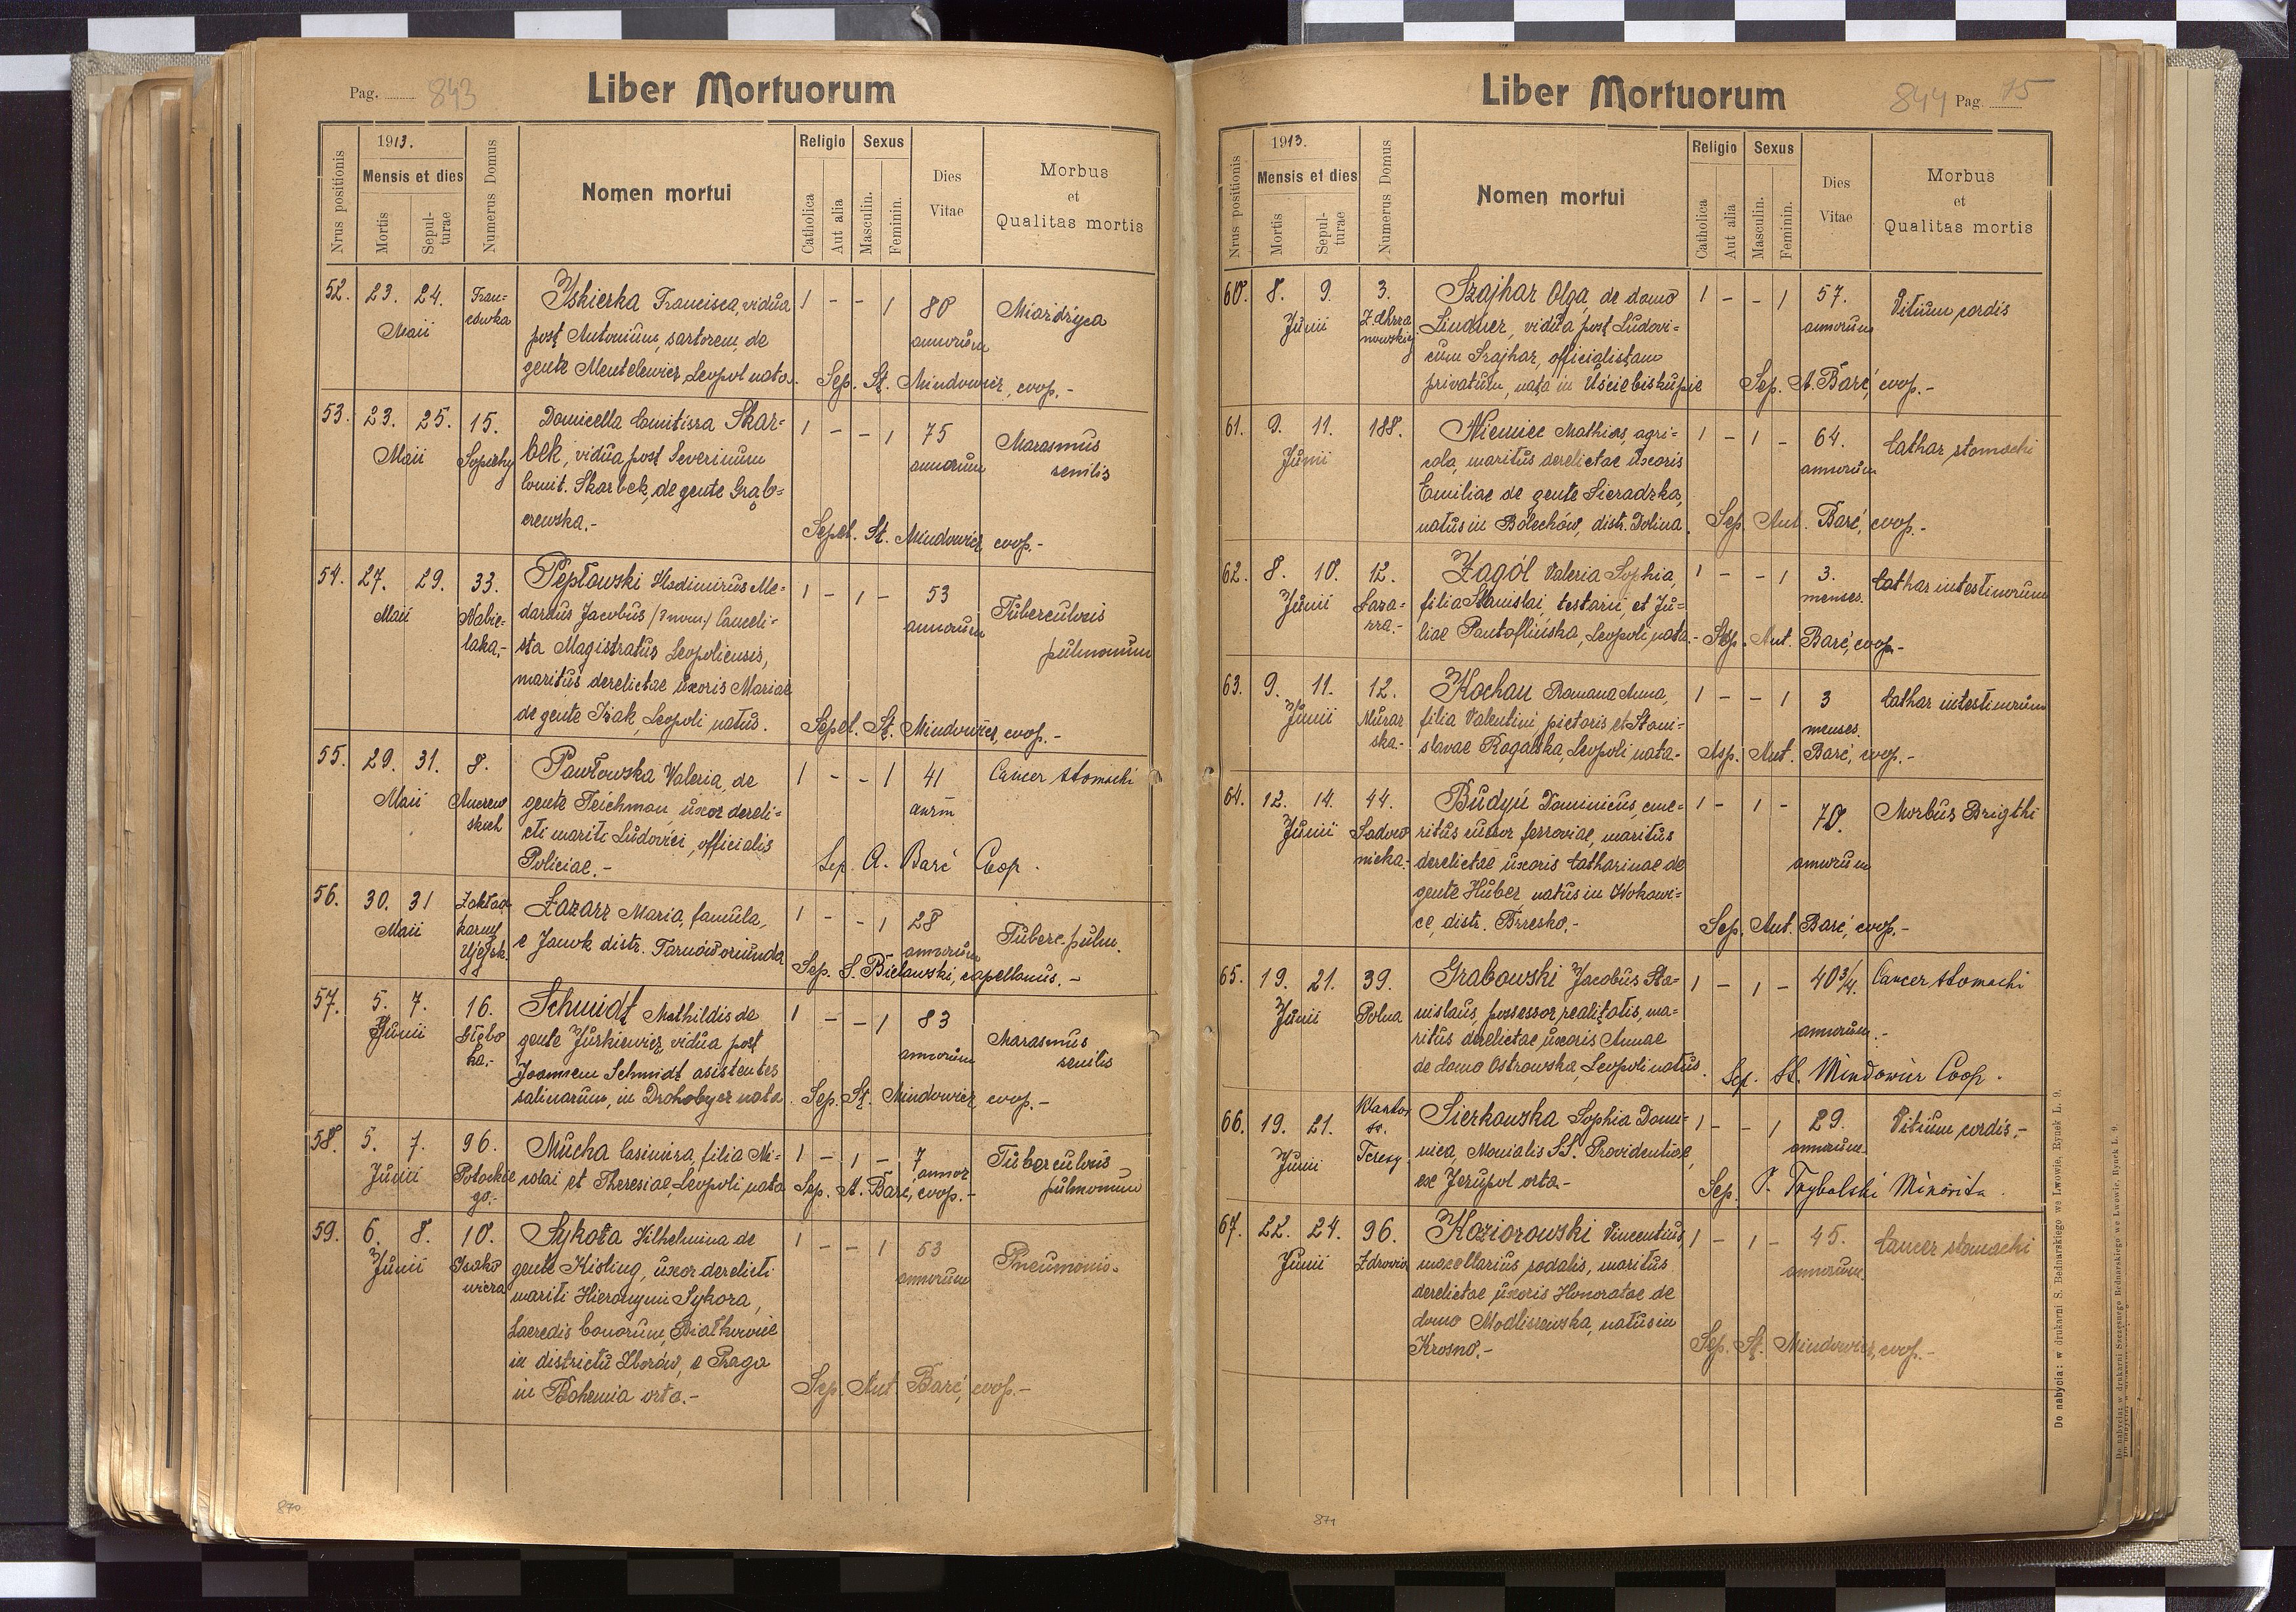 Pag. 843
Liber Mortuorum
Nrus positionis
1913.
Mensis et dies
Mortis
Sepul-
turae
Numerus Domus
Nomen mortui
Religio
Catholica
Aut alia
Sexus
Masculin.
Feminin.
Dies
Vitae
Morbus
et
Qualitas mortis
52. 23. 24. Fran- Yskierka Francisca, vidua 1 - - 1 80 Miażdżyca
Maii cówka post Antonium, sartorem, de annorum
gente Mentelewicz, Leopol nata. Sep. St. Mindowicz, coop.-
53. 23. 25. 15. Domicella Comitissa Skar- 1 - - 1 75 Marasmus
Maii Sapiehy bek, vidua post Severinum annorum senilis
Comit. Skarbek, de gente Grąb-
czewska.- Sepel. St. Mindowicz, coop.-
54. 27. 29. 33. Pepłowski Wladimirus Me- 1 - 1 - 53 Tuberculosis
Maii Nabie- dardus Jacobus (3 nom.) Canceli- annorum pulmonum
laka,- sta Magistratus Leopoliensis,
maritus derelictae uxoris Mariae
de gente Isak, Leopoli natus. Sepel. St. Mindowicz, coop.-
55. 29. 31. 8. Pawłowska Valeria, de 1 - - 1 41 Cancer stomachi
Maii gente Teichman, uxor dereli- anrm
cti mariti Ludovici, officialis
Policiae.- Sep. A. Baré Coop.
56. 30. 31 Zakład Łazarz Maria, famula, 1 - - 1 28 Tuberc. pulm.
Maii karny e Janok distr. Tarnów oriunda annorum
Sep. S. Bielawski, capellanus.-
57. 5. 7. 16. Schmidt Mathildis de 1 - - 1 83 Marasmus
Junii Głębo gente Jurkiewicz, vidua post annorum senilis
ka.- Joannem Schmidt asistentes
salinarum, in Drohobycz nata. Sep. St. Mindowicz, coop.-
58. 5. 7. 96. Mucha Casimira, filia Ni- 1 - 1 - 7 Tuberculosis
Junii Potockie colai et Theresiae, Leopoli nata annor. pulmonum
go.- Sep. A. Baré, coop.-
59. 6. 8. 10. Sykora Wilhelmina de 1 - - 1 53 Pneumonia.
Junii Isako gente Kisling, uxor derelicti annorum
wicza mariti Hieronymi Sykora,
haeredis bonorum, Białkowce
in districtu Zborów, e Praga
in Bohemia orta.- Sep. Ant. Baré, coop.-
870
Liber Mortuorum
844 Pag. 75
Nrus positionis
1913.
Mensis et dies
Mortis
Sepul-
turae
Numerus Domus
Nomen mortui
Religio
Catholica
Aut alia
Sexus
Masculin.
Feminin.
Dies
Vitae
Morbus
et
Qualitas mortis
60. 8. 9. 3. Szajhar Olga, de domo 1 - - 1 57. Vitium cordis
Junii Z. Chrza Lindner, vidua post Ludovi- annorum
nowskiej cum Szajhar, officialistam
privatum, nata in Uście biskupie Sep. A. Baré, coop.-
61. 9. 11. 188. Niemiec Mathias, agri- 1 - 1 - 64. Cathar stomachi
Junii cola, maritus derelictae uxoris annorum
Emiliae de gente Sieradzka,
natus in Bolechów, distr. Dolina. Sep. Ant. Baré, coop.-
62. 8. 10. 12. Zagól Valeria Sophia, 1 - - 1 3. Cathar intestinorum
Junii Łaza- filia Stanislai, testarii, et Ju- menses.
rza.- liae Pantoflińska, Leopoli nata.- Sep. Ant. Baré, coop.-
63. 9. 11. 12. Kochan Romana Anna, 1 - - 1 3 Cathar intestinorum
Junii Murar filia Valentini, pictoris et Stani- menses.
ska.- slavae Rogalska, Leopoli nata.- Sep. Ant. Baré, coop.-
64. 12. 14. 44. Budyń Dominicus, eme- 1 - 1 - 70. Morbus Brigthi
Junii Sadow ritus custor ferroviae, maritus annorum
nicka.- derelictae uxoris Catharinae de
gente Huber, natus in Wokowi-
ce, distr. Brzesko.- Sep. Ant. Baré, coop.-
65. 19. 21. 39. Grabowski Jacobus Sta- 1 - 1 - 40 3/4. Cancer stomachi
Junii Polna nislaus, possessor realitatis, ma- annorum.-
ritus derelictae uxoris Annae
de domo Ostrowska, Leopoli natus. Sep. St. Mindowicz Coop.
66. 19. 21. Klasztor Sierkowska Sophia Domi- 1 - - 1 29. Vitium cordis.-
Junii sc. Teresy nica, Monialis SS. Providentiae, annorum
ex Jezupol orta.- Sep. P. Trybalski Minorita.
67. 22. 24. 96. Koziorowski Vincentius, 1 - 1 - 45. Cancer stomachi
Junii Zdrowia macellarius sodalis, maritus annorum.
derelictae uxoris Honoratae de
domo Modliszewska, natus in
Krosno.- Sep. St. Mindowicz, coop.-
871
Do nabycia: w drukarni S. Bednarskiego we Lwowie, Rynek L. 9.
Do nabycia: w drukarni Szczęsnego Bednarskiego we Lwowie, Rynek L. 9.